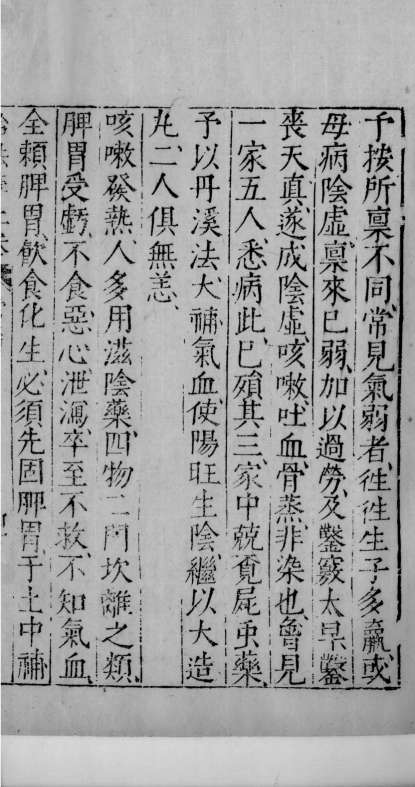 予按所禀不同常見氣弱者徃徃生子多羸或
母病陰虛禀來已弱加以過勞及鑿竅太早鑿
喪天真遂成陰虛咳嗽吐血骨蒸非染也曾見
一家五人悉病此已殞其三家中競覔屍虫藥
予以丹溪法大補氣血使陽旺生陰繼以大造
丸二人俱無恙
咳嗽發熱人多用滋陰藥四物二門坎離之類
脾胃受虧不食惡心泄瀉卒至不救不知氣血
全賴脾胃飲食化生必須先固脾胃于土中補